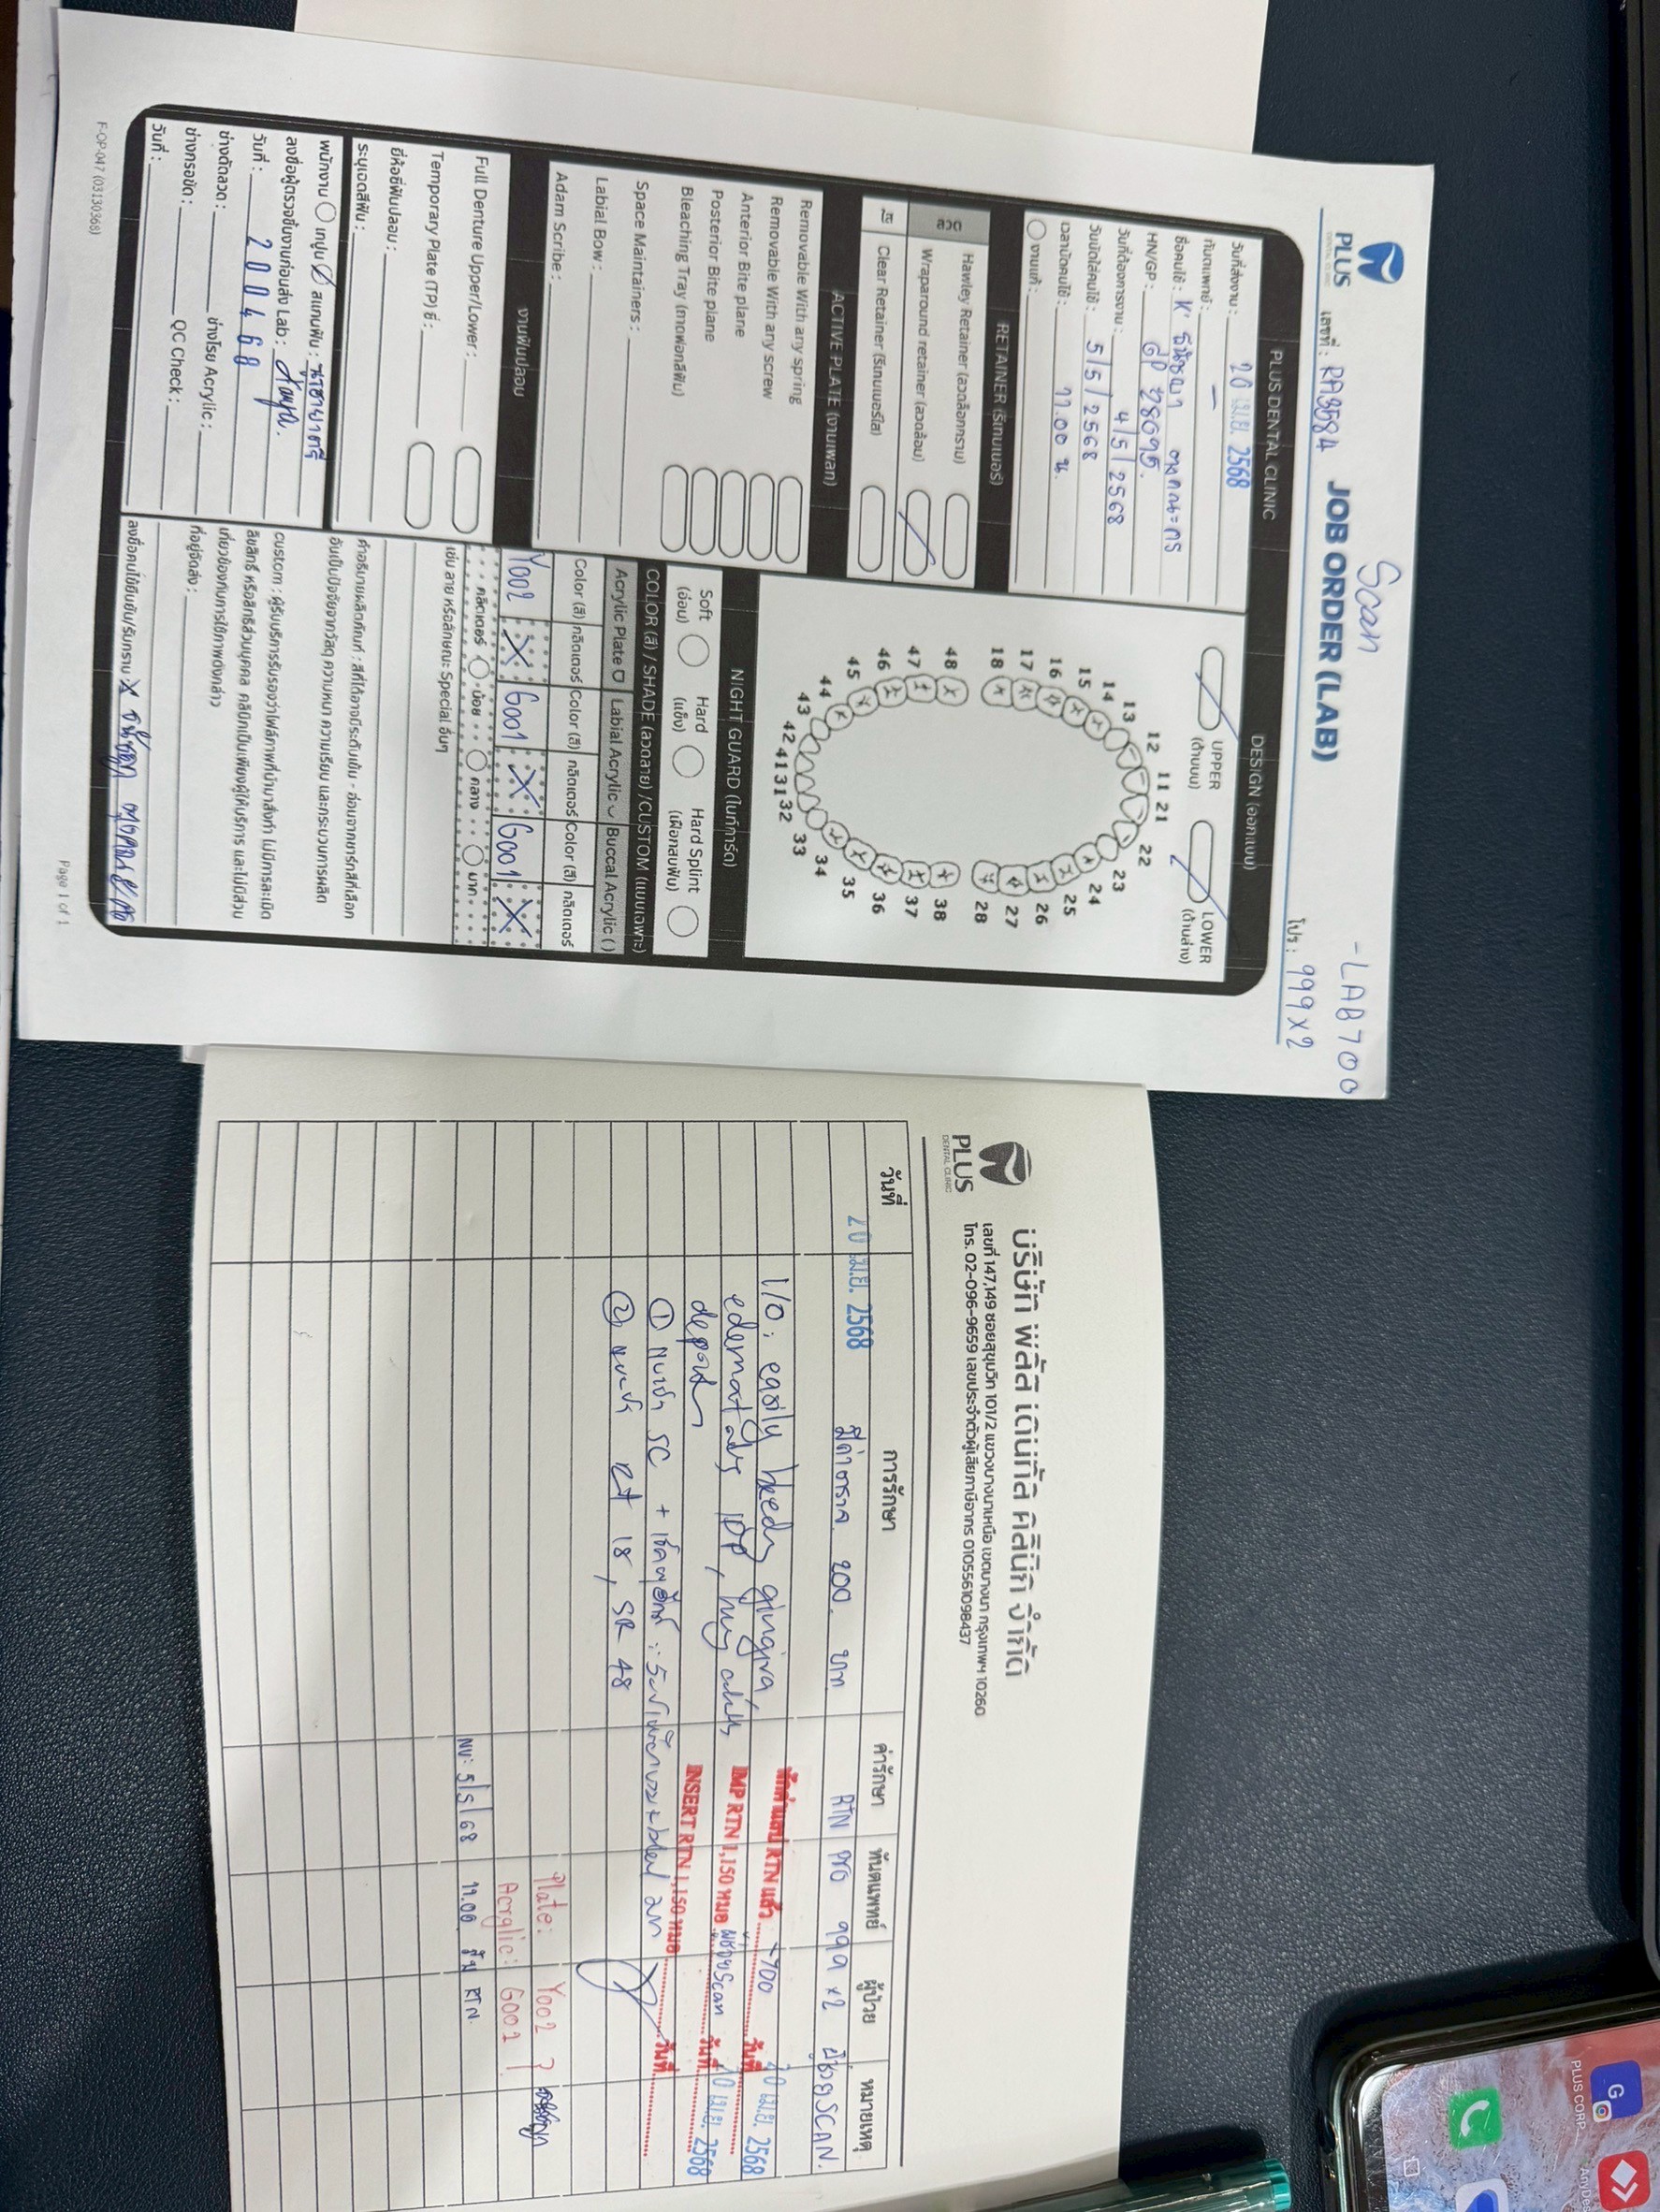 Scan
-LAB 700
PLUS
DENTAL CLINIC
เลขที่ : RA3584
JOB ORDER (LAB)
โปร : 999 x 2
PLUS DENTAL CLINIC
วันที่ส่งงาน : 20 เม.ย. 2568
ทันตแพทย์ : -
ชื่อคนไข้ : K'
HN/GP : GP 28695
วันที่ต้องการงาน : 4/5/2568
วันนัดใส่คนไข้ : 5/5/2568
เวลานัดคนไข้ : 11.00 น.
งานแก้ :
RETAINER (รีเทนเนอร์)
ลวด
Hawley Retainer (ลวดล็อกกราม)
Wraparound retainer (ลวดล้อม)
ใส
Clear Retainer (รีเทนเนอร์ใส)
ACTIVE PLATE (งานเพลท)
Removable With any spring
Removable With any screw
Anterior Bite plane
Posterior Bite plane
Bleaching Tray (ถาดฟอกสีฟัน)
Space Maintainers :
Labial Bow :
Adam Scribe :
งานฟันปลอม
Full Denture Upper/Lower :
Temporary Plate (TP) ซี่ :
ยี่ห้อซี่ฟันปลอม :
ระบุเฉดสีฟัน :
พนักงาน เทปูน สแกนฟัน :
ลงชื่อผู้ตรวจชิ้นงานก่อนส่ง Lab :
วันที่ : 200468
ช่างดัดลวด : ช่างโรย Acrylic :
ช่างกรอขัด : QC Check :
วันที่ :
DESIGN (ออกแบบ)
UPPER
(ด้านบน)
LOWER
(ด้านล่าง)
18 17 16 15 14 13 12 11 21 22 23 24 25 26 27 28
48 47 46 45 44 43 42 41 31 32 33 34 35 36 37 38
NIGHT GUARD (ไนท์การ์ด)
Soft
(อ่อน)
Hard
(แข็ง)
Hard Splint
(เฝือกสบฟัน)
COLOR (สี) / SHADE (ลวดลาย) /CUSTOM (แบบเฉพาะ)
Acrylic Plate Labial Acrylic Buccal Acrylic ( )
Color (สี) กลิตเตอร์ Color (สี) กลิตเตอร์ Color (สี) กลิตเตอร์
Y002 X G001 X G001 X
กลิตเตอร์ น้อย กลาง มาก
เช่น ลาย หรือลักษณะ Special อื่นๆ
คำอธิบายผลิตภัณฑ์ : สีที่ได้อาจมีระดับเข้ม - อ่อนจากชาร์ทสีที่เลือก
อันเป็นปัจจัยจากวัสดุ ความหนา ความเรียบ และกระบวนการผลิต
custom : ผู้รับบริการรับรองว่าไฟล์ภาพที่นำมาสั่งทำ ไม่มีการละเมิด
ลิขสิทธิ์ หรือสิทธิส่วนบุคคล คลินิกเป็นเพียงผู้ให้บริการ และไม่มีส่วน
เกี่ยวข้องกับการใช้ภาพดังกล่าว
ที่อยู่จัดส่ง :
ลงชื่อคนไข้ยืนยัน/รับทราบ X
F-OP-047 (03130368)
Page 1 of 1
PLUS
DENTAL CLINIC
บริษัท พลัส เดนทัล คลินิก จำกัด
เลขที่ 147,149 ซอยสุขุมวิท 101/2 แขวงบางนาเหนือ เขตบางนา กรุงเทพฯ 10260
โทร. 02-096-9659 เลขประจำตัวผู้เสียภาษีอากร 0105561098437
วันที่ การรักษา ค่ารักษา ทันตแพทย์ ผู้ป่วย หมายเหตุ
20 เม.ย. 2568 มีค่าตรวจ 200 บาท RTN pro 999 x2 ผู้ช่วย SCAN.
I/O : easily bleeding gingiva,
หักค่าแลป RTN แล้ว -700 วันที่ 20 เม.ย. 2568
edematous IDP, heavy calculus
IMP RTN 1,150 หมอ ผู้ช่วย Scan วันที่ 20 เม.ย. 2568
deposit
INSERT RTN 1,150 หมอ วันที่
① แนะนำ SC
② แนะนำ ext 18, SR 48
Plate: Y002
Acrylic: G001
NV: 5/5/68 11.00 รับ RTN.
PLUS CORP